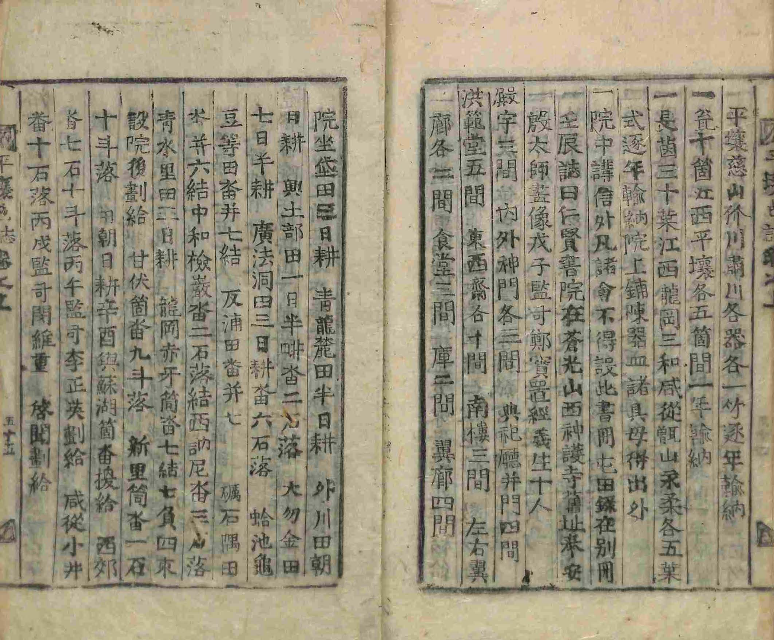 平壤慈山介川肅川各器各一竹逐年輸納
一瓮十箇江西平壤各五箇間一年輸納
一長茵三十葉江西龍岡三和咸從甑山永柔各五葉
式逐年輸納院上鋪陳器皿諸具毋得出外
一院中講信外凡諸會不得設此書冊屯田錄在別冊
一壬辰誌曰仁賢書院在蒼光山西神護寺舊址奉安
殷太師畫像戊子監司鄭 置經義生十人
殿宇三間 內外神門各三間 典祀廳并門四間
洪範堂五間 東西齋各十間 南樓三間 左右翼
廊各二間 食堂三間 庫三間 翼廊四間
院坐岱田三日耕 靑龍麓田半日耕 外川田朝
日耕 興土部田一日半耕畓二石落 大勿金田
七日半耕 廣法洞田三日耕畓六石落 蛤池龜
豆等田畓并七結 反浦田畓并七 礪石隅田
畓并六結中和檢巖畓二石落結西訥尼畓三石落
靑水里田三日耕 龍岡赤牙筒畓七結七負四束
設院後劃給 甘伏箇畓九斗落 新里筒畓一石
十斗落 田朝日耕辛酉與蘇湖箇畓換給 西郊
畓七石十斗落丙午監司李正英劃給 咸從小井
畓十石落丙戌監司閔維重 啓聞劃給
五十五